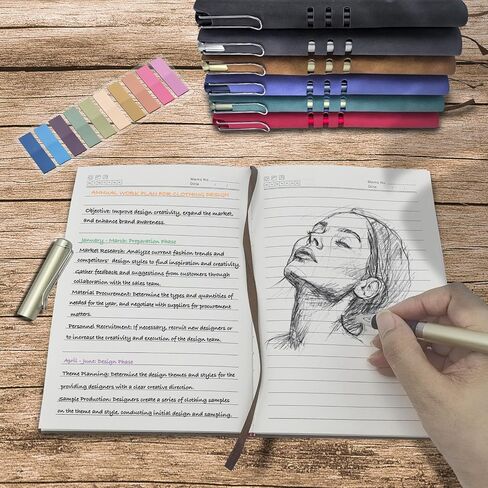 Memo No.
Date
ANNUAL WORK PLAN FOR CLOTHING DESIGN
Objective: Improve design creativity, expand the market,
and enhance brand awareness.
January - March: Preparation Phase
Market Research: Analyze current fashion trends and
competitors' design styles to find inspiration and creativity.
Gather feedback and suggestions from customers through
collaboration with the sales team.
Material Procurement: Determine the types and quantities of
needed for the year, and negotiate with suppliers for procurement
matters.
Personnel Recruitment: If necessary, recruit new designers or
to increase the creativity and execution of the design team.
April - June: Design Phase
Theme Planning: Determine the design themes and styles for the
providing designers with a clear creative direction.
Sample Production: Designers create a series of clothing samples
on the theme and style, conducting initial design and sampling.
Memo No.
Date